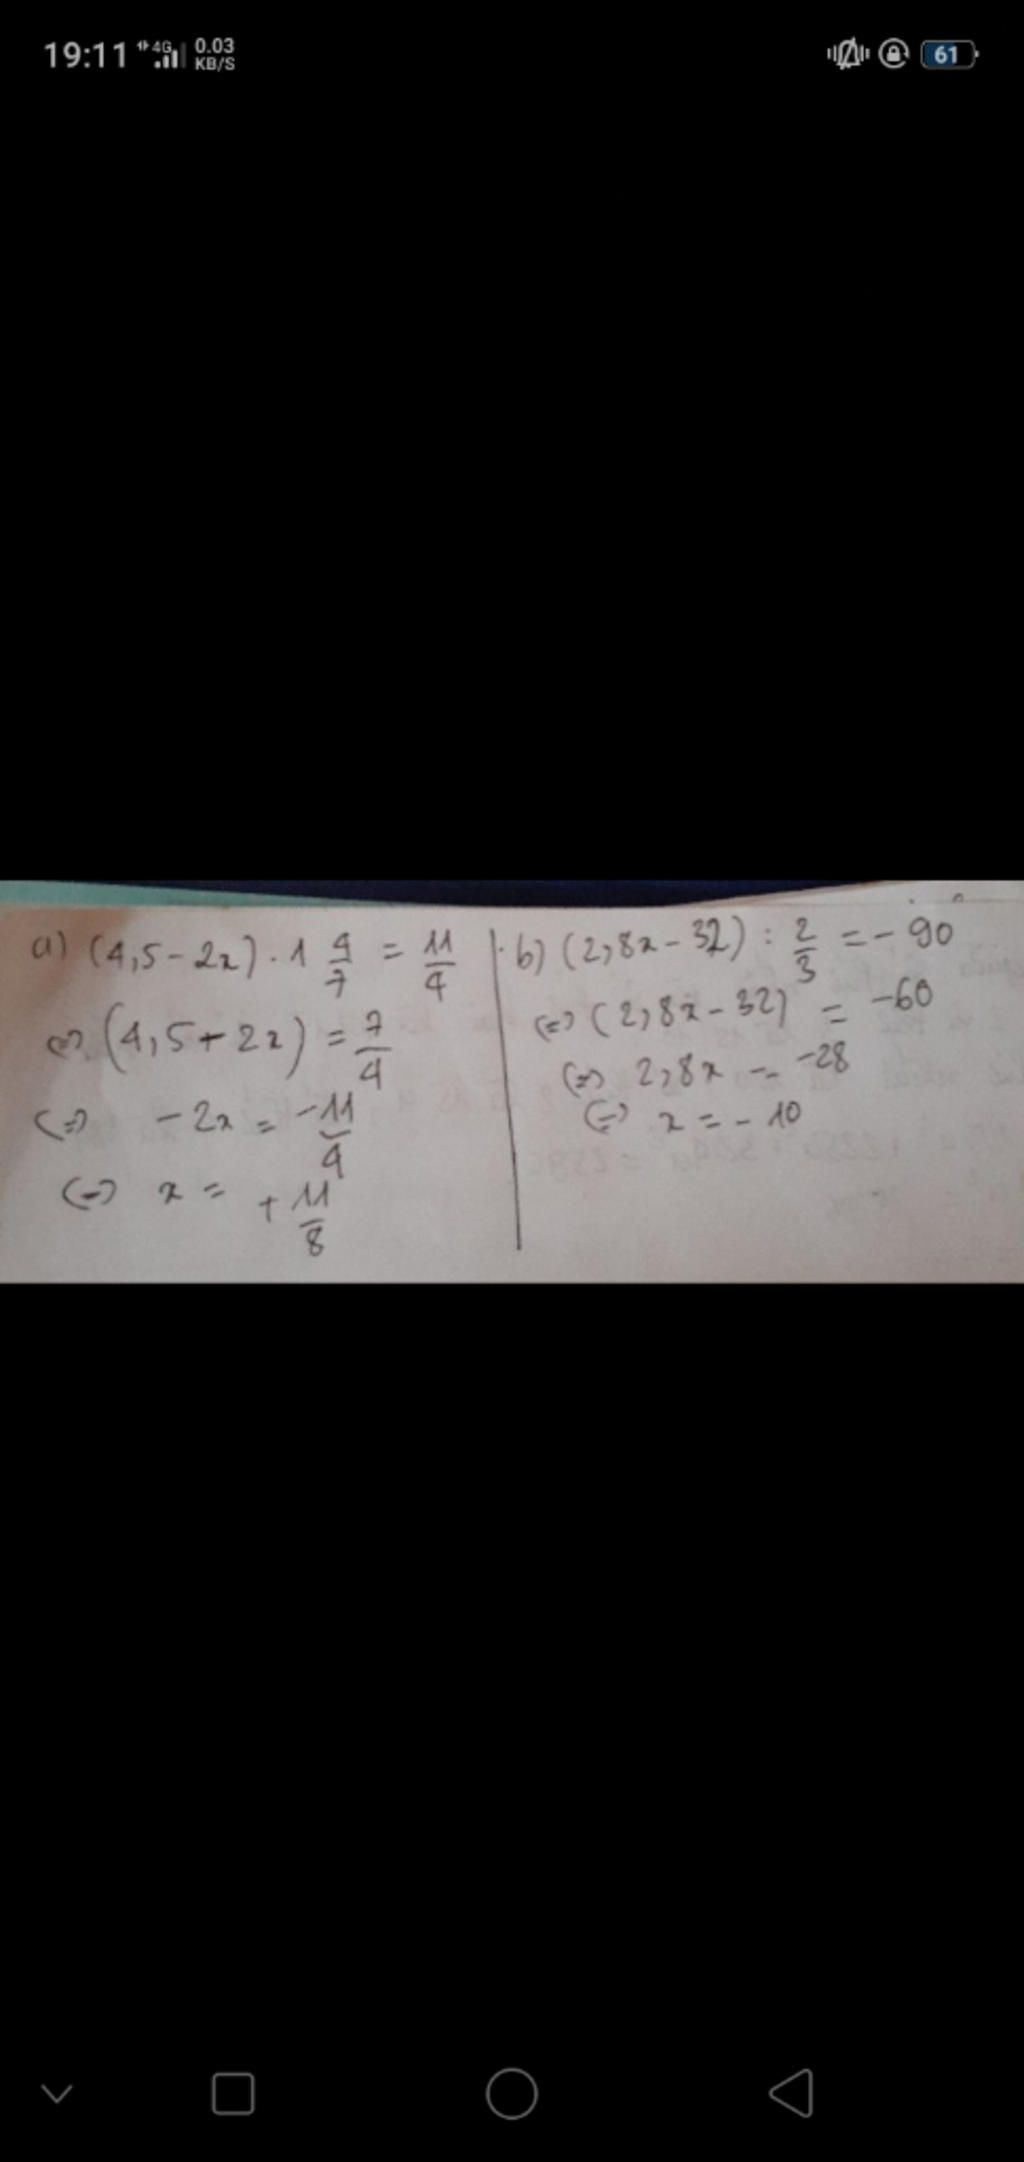 19:11 4G 0.03 KB/S 61
a) (4,5 - 2x) . 1 4/7 = 11/4
<=> (4,5 + 2x) = 7/4
<=> - 2x = -11/4
<=> x = + 11/8
b) (2,8x - 32) : 2/3 = - 90
<=> (2,8x - 32) = -60
<=> 2,8x = -28
<=> x = - 10